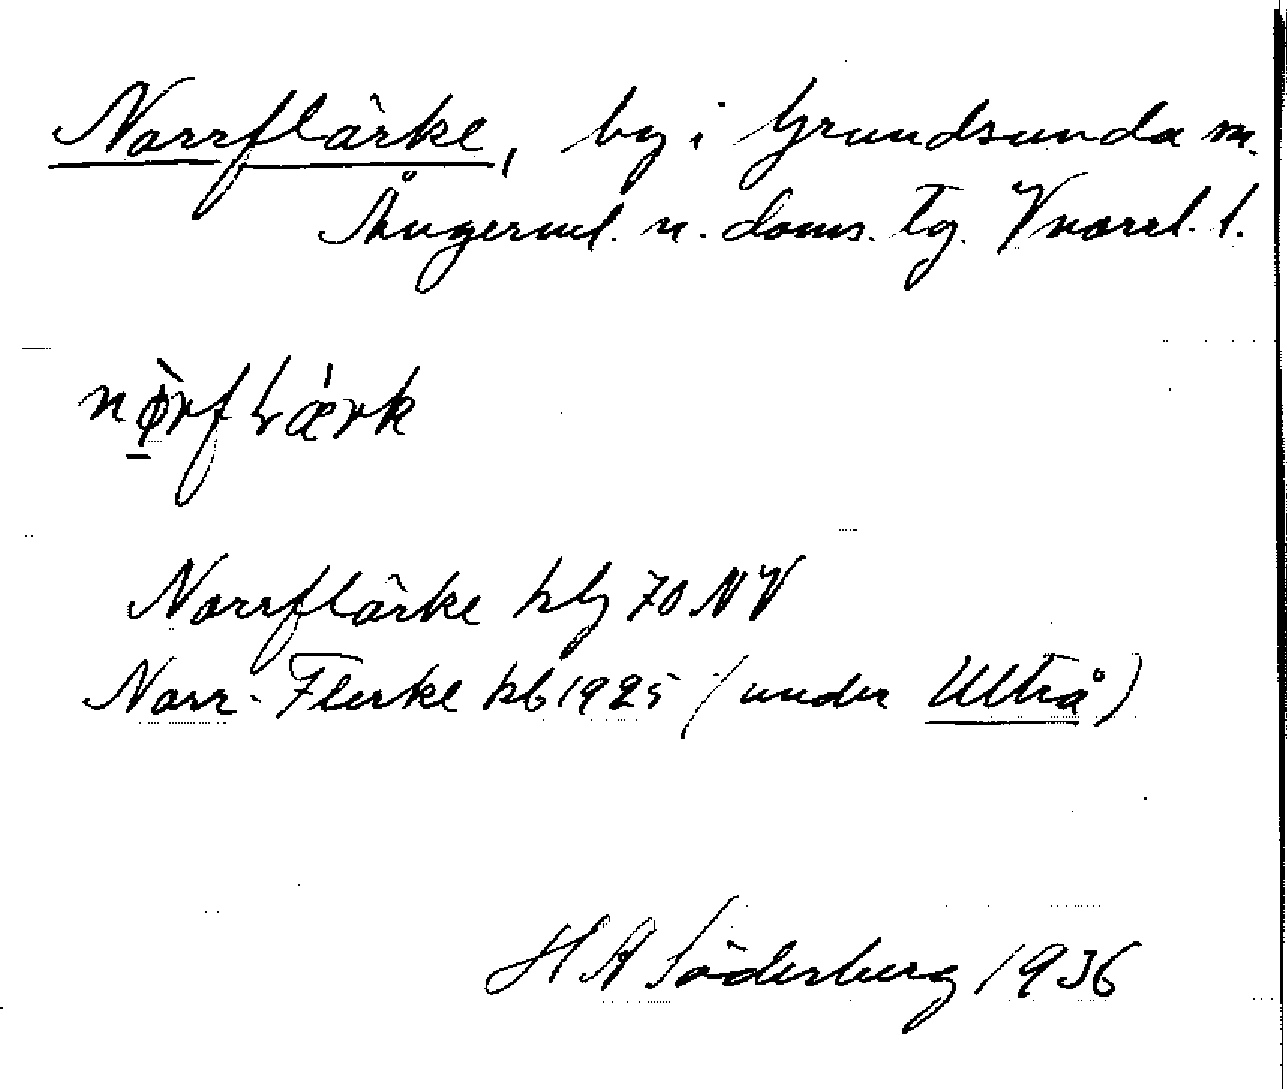 Norrflärke, by i Grundsunda sn.
Ångerml. n. doms. tg. Vnorrl. l.
nø̀rfɫǽrk
Norrflärke kbl 70 NV
Norr-Flerke kb 1925 (under Ultrå)
H A Söderberg 1936